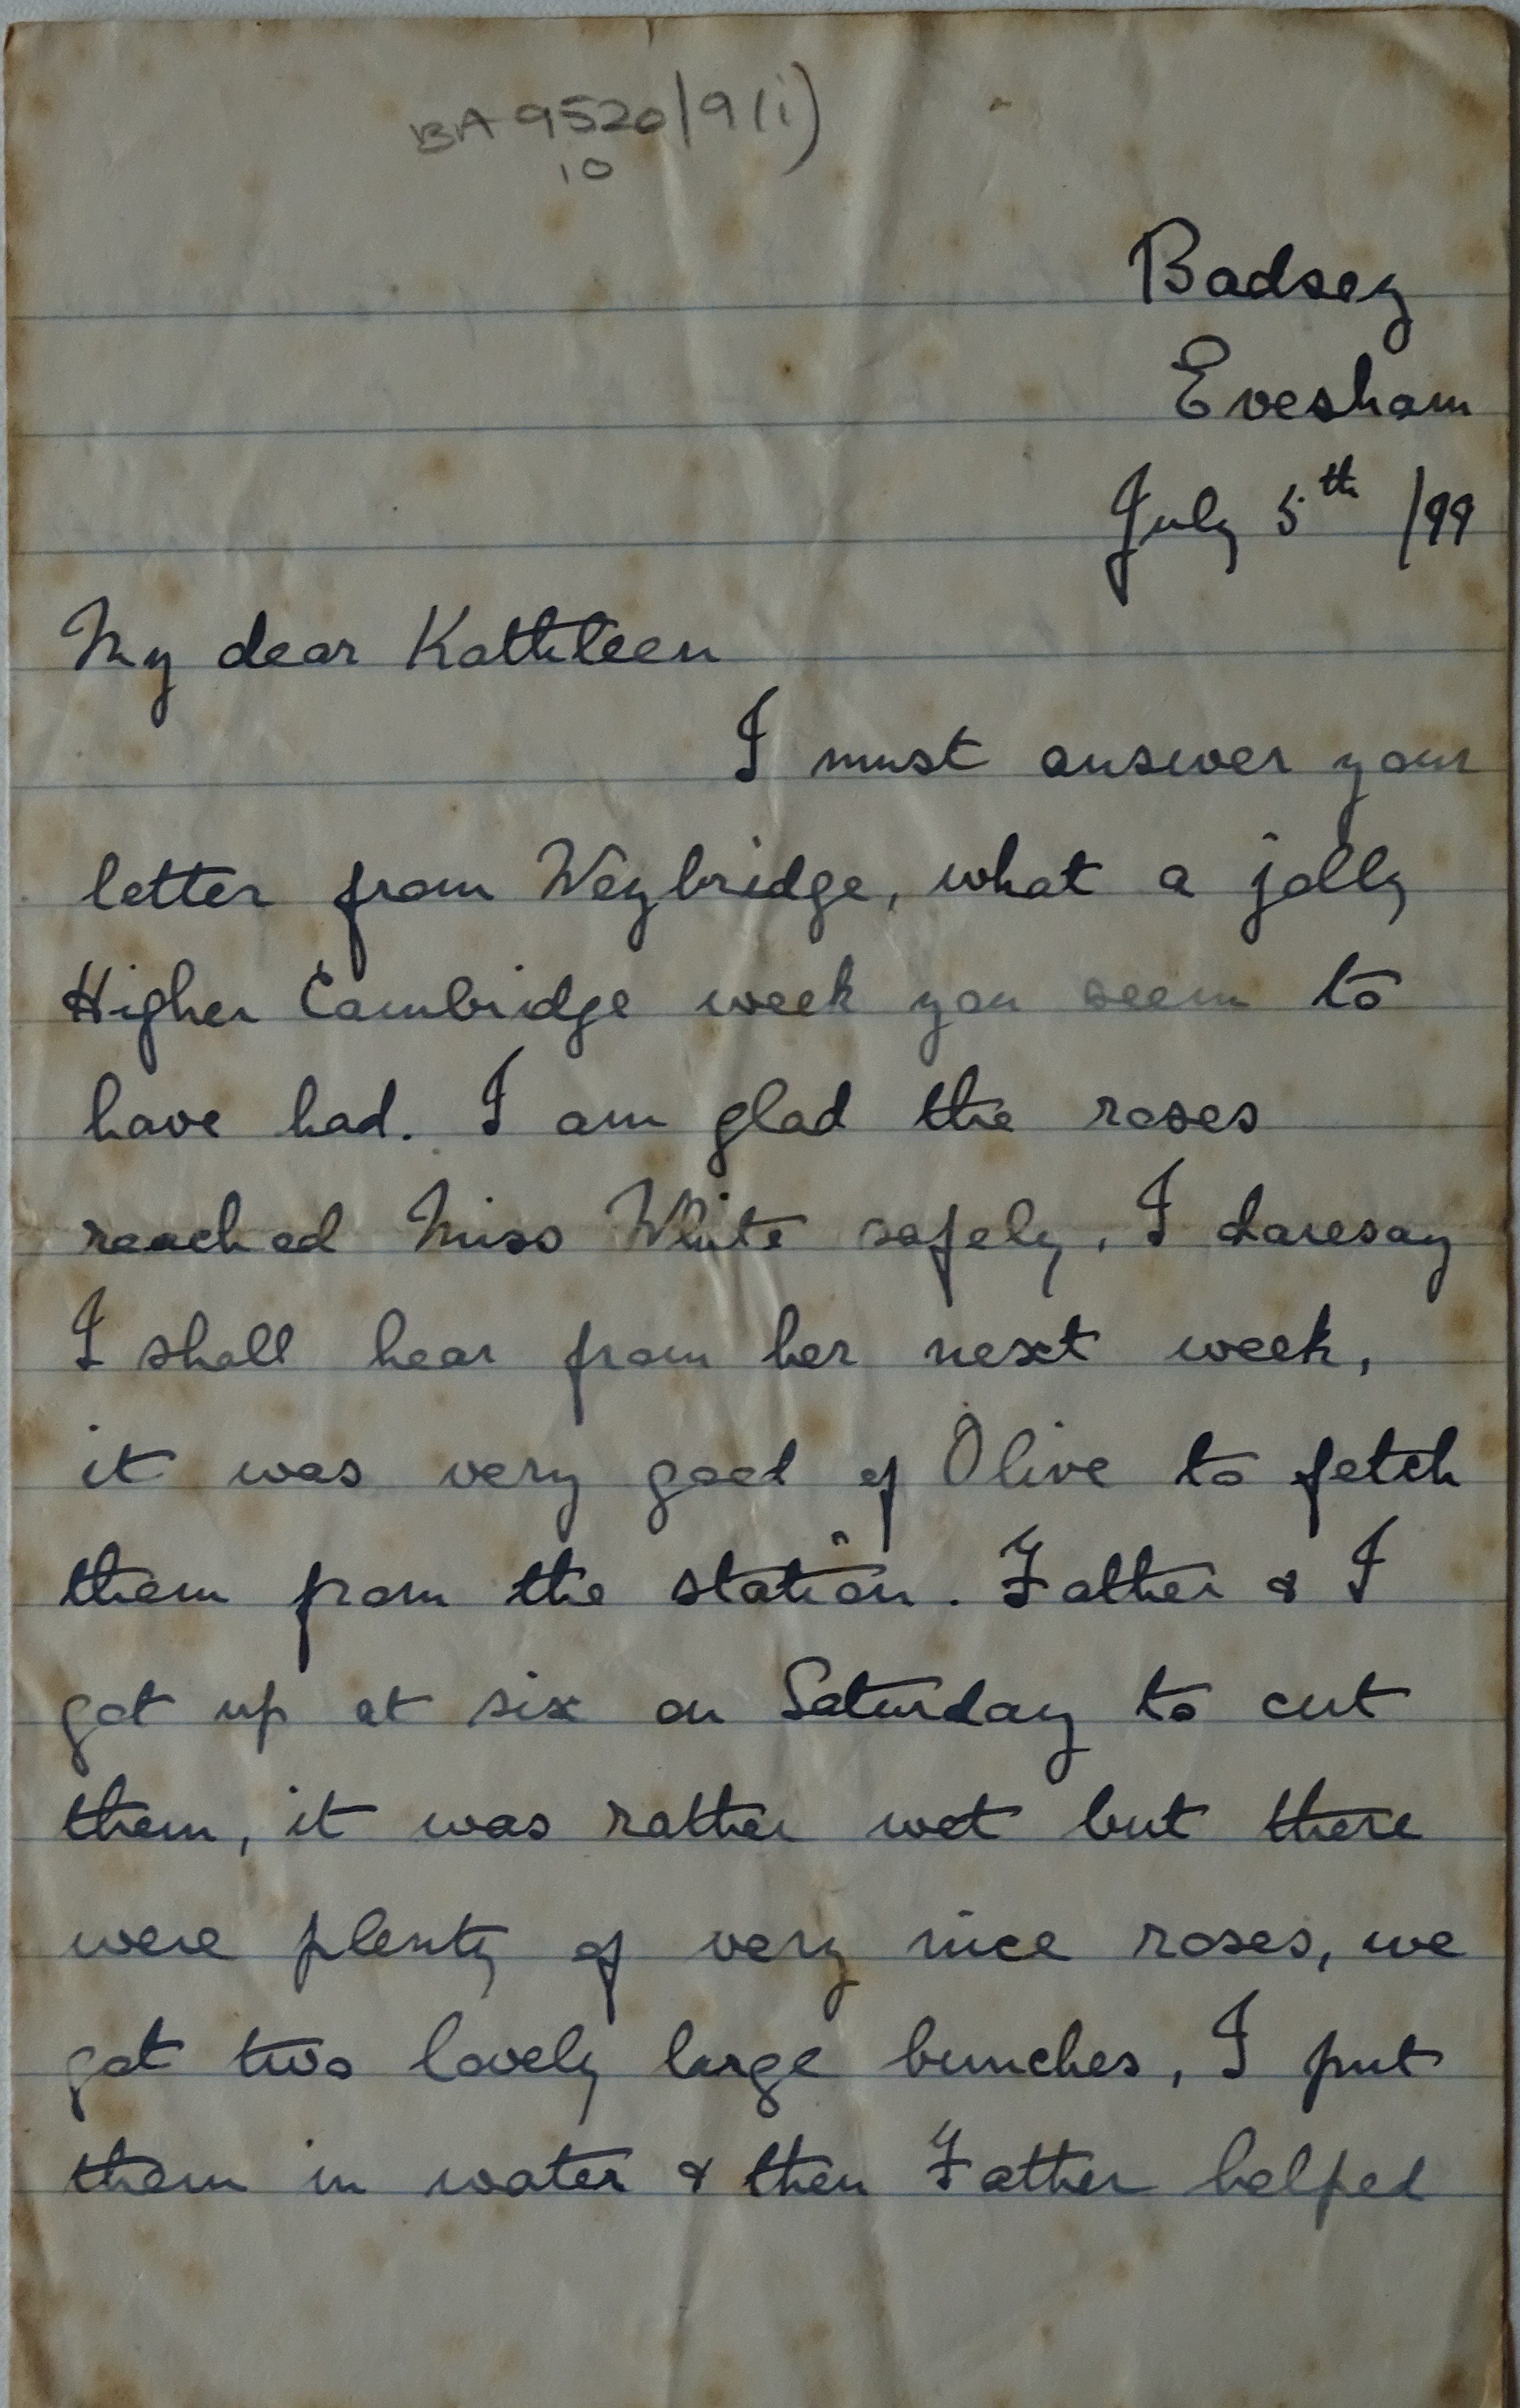 BA 9520/9(i)
10
Badsey
Evesham
July 5th /99
My dear Kathleen
I must answer your
letter from Weybridge, what a jolly
Higher Cambridge week you seem to
have had. I am glad the roses
reached Miss White safely, I daresay
I shall hear from her next week,
it was very good of Olive to fetch
them from the station. Father & I
got up at six on Saturday to cut
them, it was rather wet but there
were plenty of very nice roses, we
got two lovely large bunches, I put
them in water & then Father helped